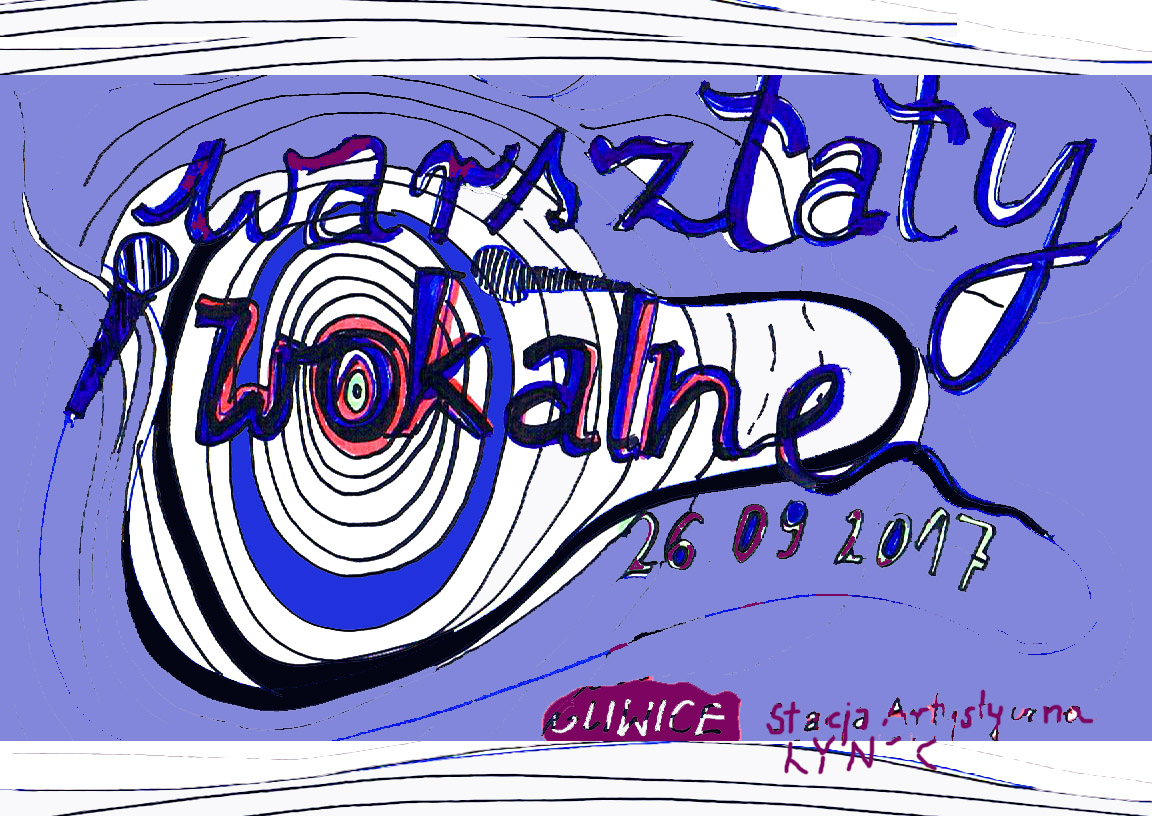 warsztaty
wokalne
26 09 2017
GLIWICE Stacja Artystyczna